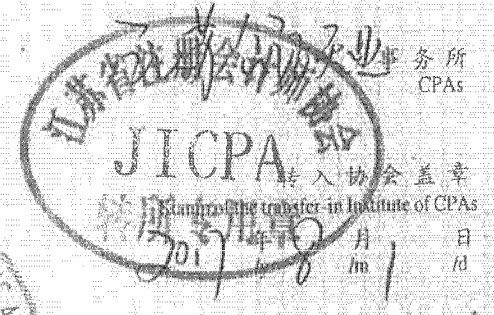 事务所
CPAs
江苏省注册会计师协会
JICPA
转入协会盖章
Stamp of the transfer-in Institute of CPAs
转所专用章
2017年8月1日
/y /m /d